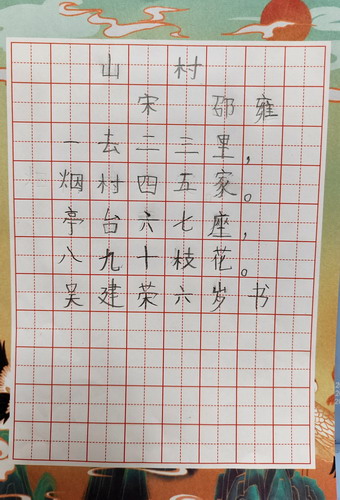 山村
宋 邵雍
一去二三里，
烟村四五家。
亭台六七座，
八九十枝花。
吴建荣六岁书